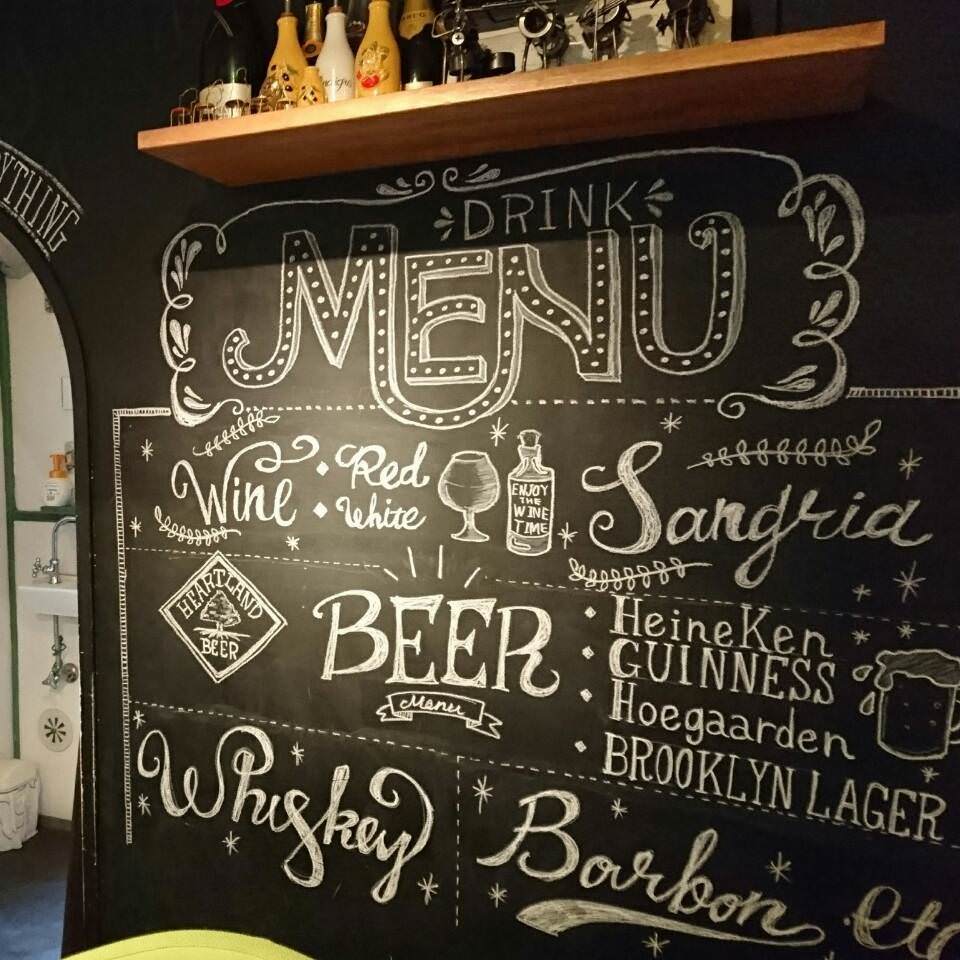 YTHING
DRINK
MENU
Wine
Red
White
ENJOY
THE
WINE
TIME
Sangria
HEARTLAND
BEER
BEER
Menu
HeineKen
GUINNESS
Hoegaarden
BROOKLYN LAGER
Whiskey
Barbon
etc